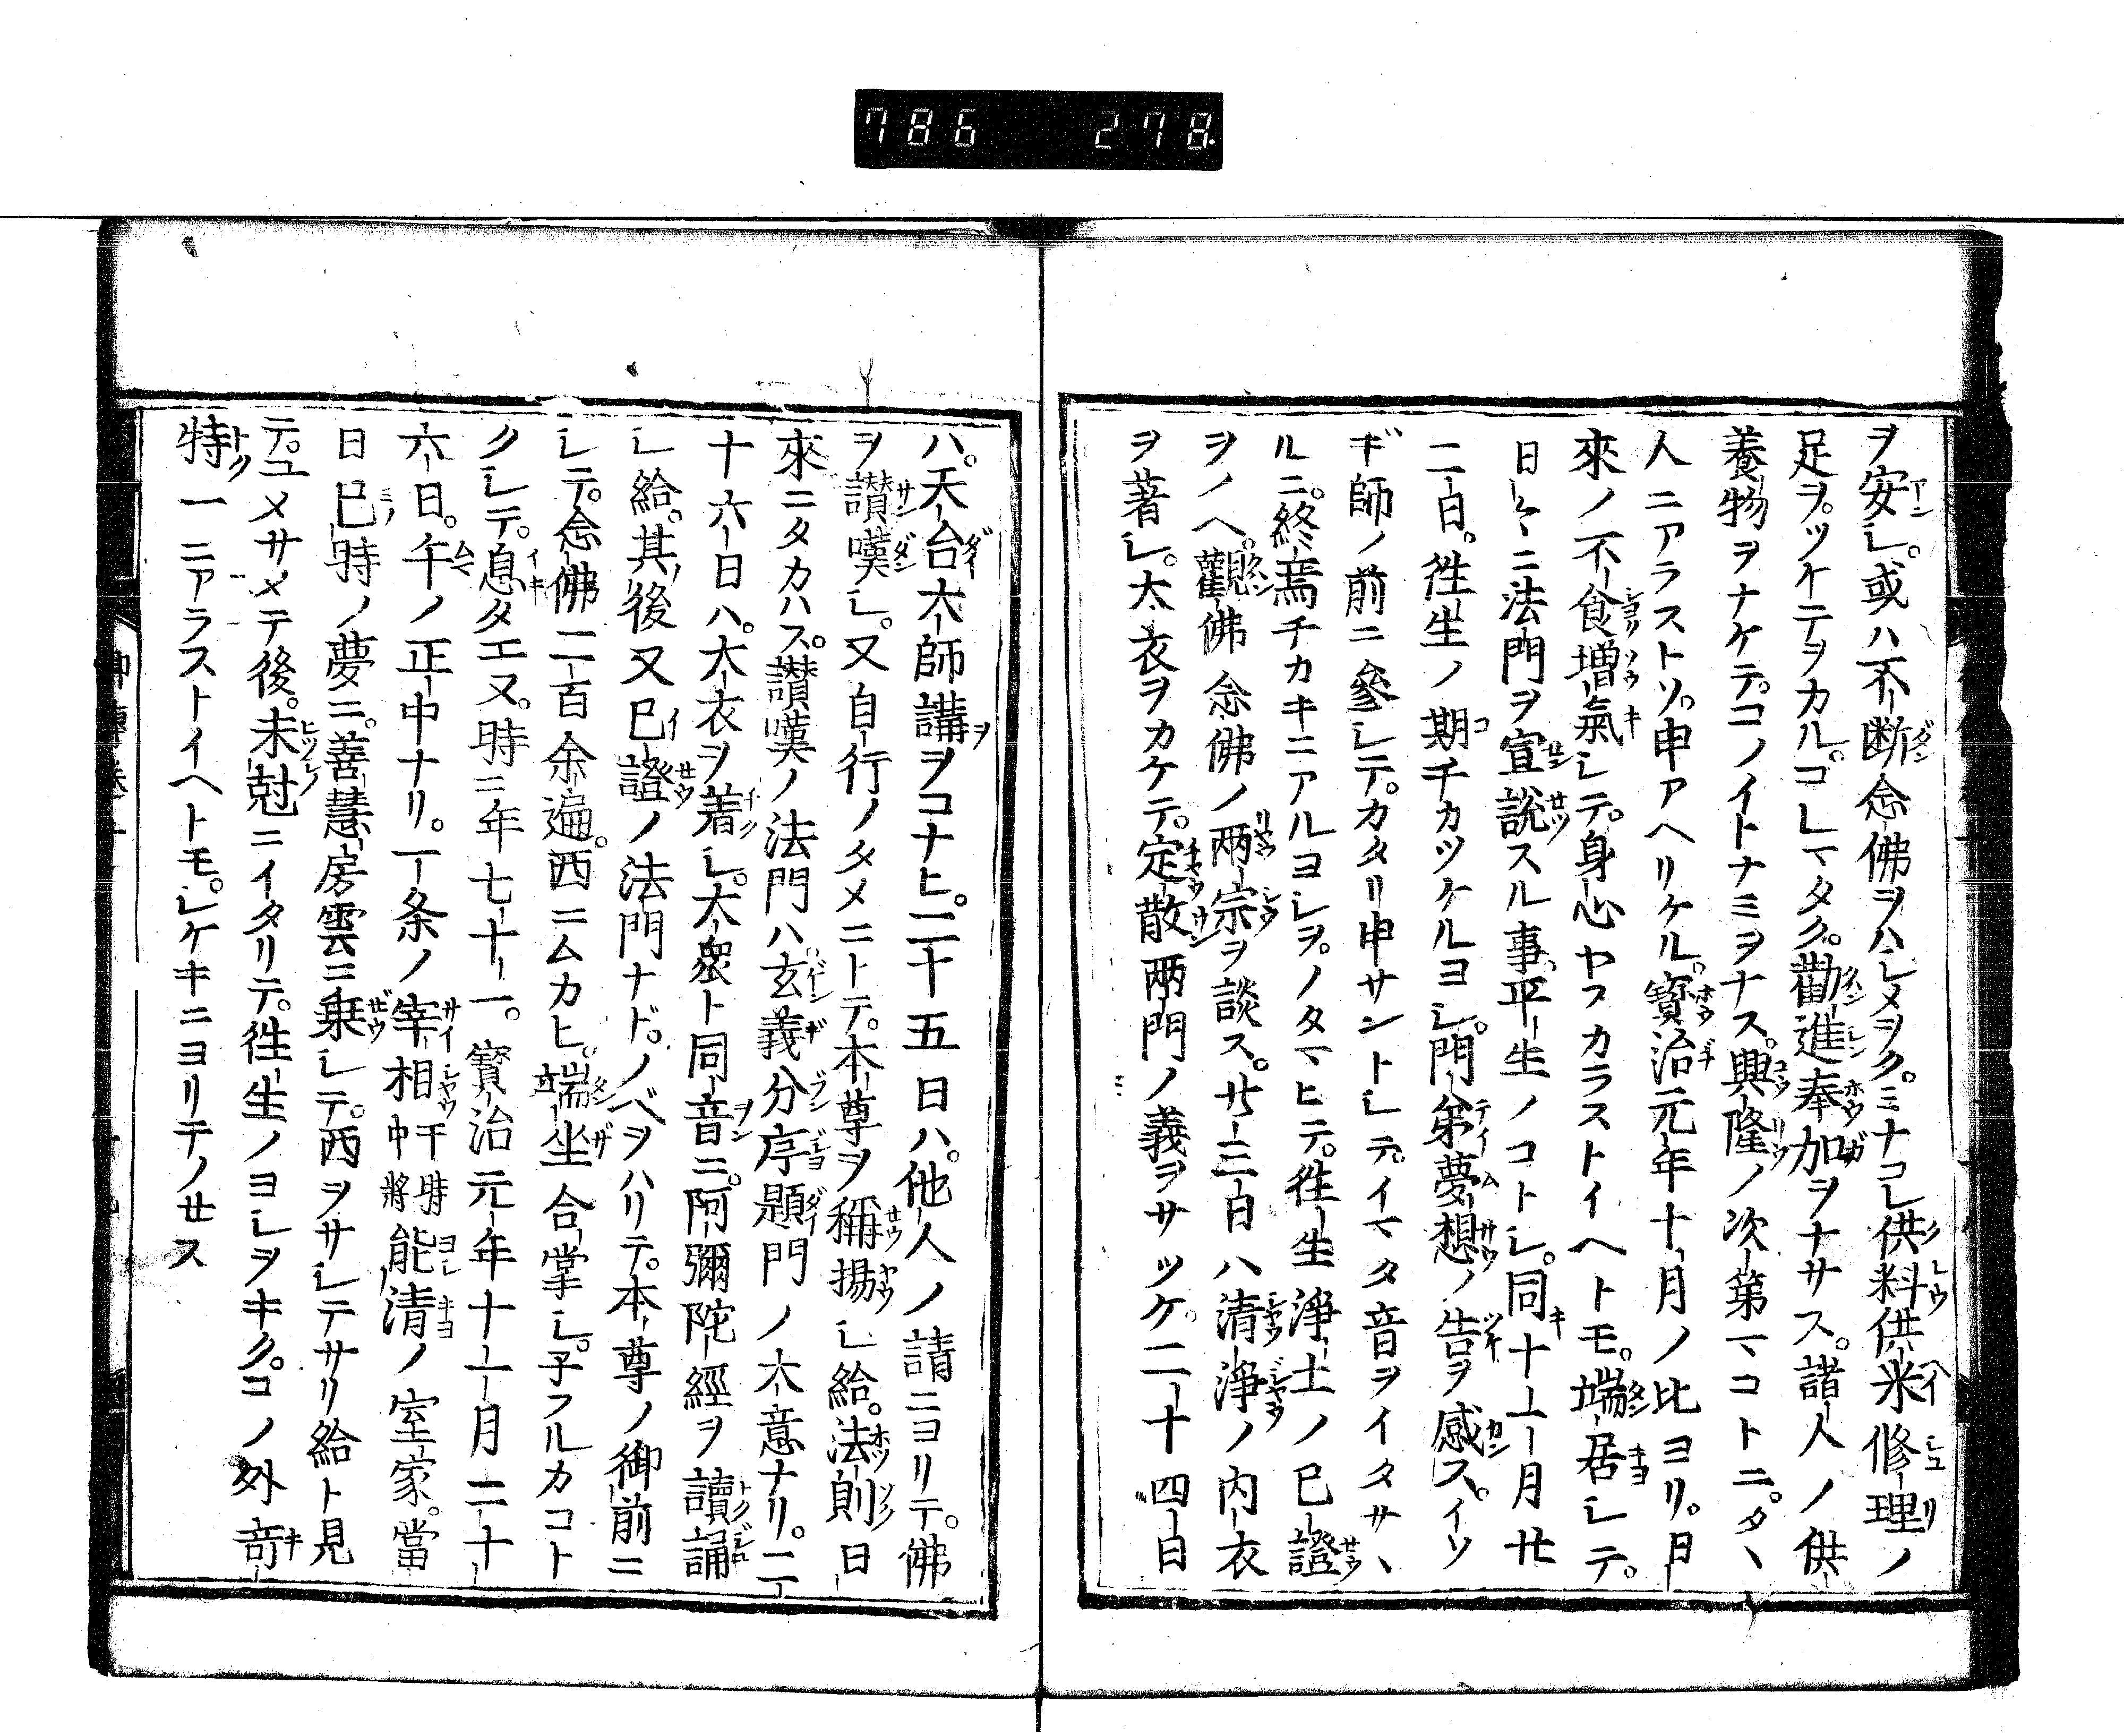 786 278
ヲ安シ。或ハ不断念佛ヲハシメヲク。ミナコレ供料供米修理ノ
足ヲ。ツケテヲカル。コレマタク。勸進奉加ヲナサス。諸人ノ供
養物ヲナケテ。コノイトナミヲナス。興隆ノ次第マコトニ。タヽ
人ニアラストソ。申アヘリケル。寳治元年十月ノ比ヨリ。日
來ノ不食増氣シテ。身心ヤスカラストイヘトモ。端居シテ。
日々ニ法門ヲ宣説スル事。平生ノコトシ。同十一月廿
二日。徃生ノ期チカツケルヨシ。門弟夢想ノ告ヲ感ス。イソ
ギ師ノ前ニ參シテ。カタリ申サントシテ。イマタ音ヲイタサヽ
ルニ。終焉チカキニアルヨシヲ。ノタマヒテ。徃生淨土ノ已證
ヲノヘ。觀佛念佛ノ兩宗ヲ談ス。廿三日ハ清淨ノ内衣
ヲ著シ。大衣ヲカケテ。定散兩門ノ義ヲサツケ。二十四日
ハ。天台大師講ヲコナヒ。二十五日ハ。他人ノ請ニヨリテ。佛
ヲ讃嘆シ。又自行ノタメニトテ。本尊ヲ稱揚シ給。法則日
來ニタカハス。讃嘆ノ法門ハ。玄義分序題門ノ大意ナリ。二
十六日ハ。大衣ヲ着シ。大衆ト同音ニ。阿彌陀經ヲ讀誦
シ給。其後又已證ノ法門ナド。ノベヲハリテ。本尊ノ御前ニ
シテ。念佛二百余遍。西ニムカヒ。端坐合掌シ。子フルカコト
クシテ。息タエヌ。時ニ年七十一。寳治元年十一月二十
六日。午ノ正中ナリ。一条ノ宰相于時中將能清ノ室家。當
日巳時ノ夢ニ。善慧房雲ニ乗シテ。西ヲサシテサリ給ト見
テ。ユメサメテ後。未尅ニイタリテ。徃生ノヨシヲキク。コノ外奇
特一ニアラストイヘトモ。シケキニヨリテノせス